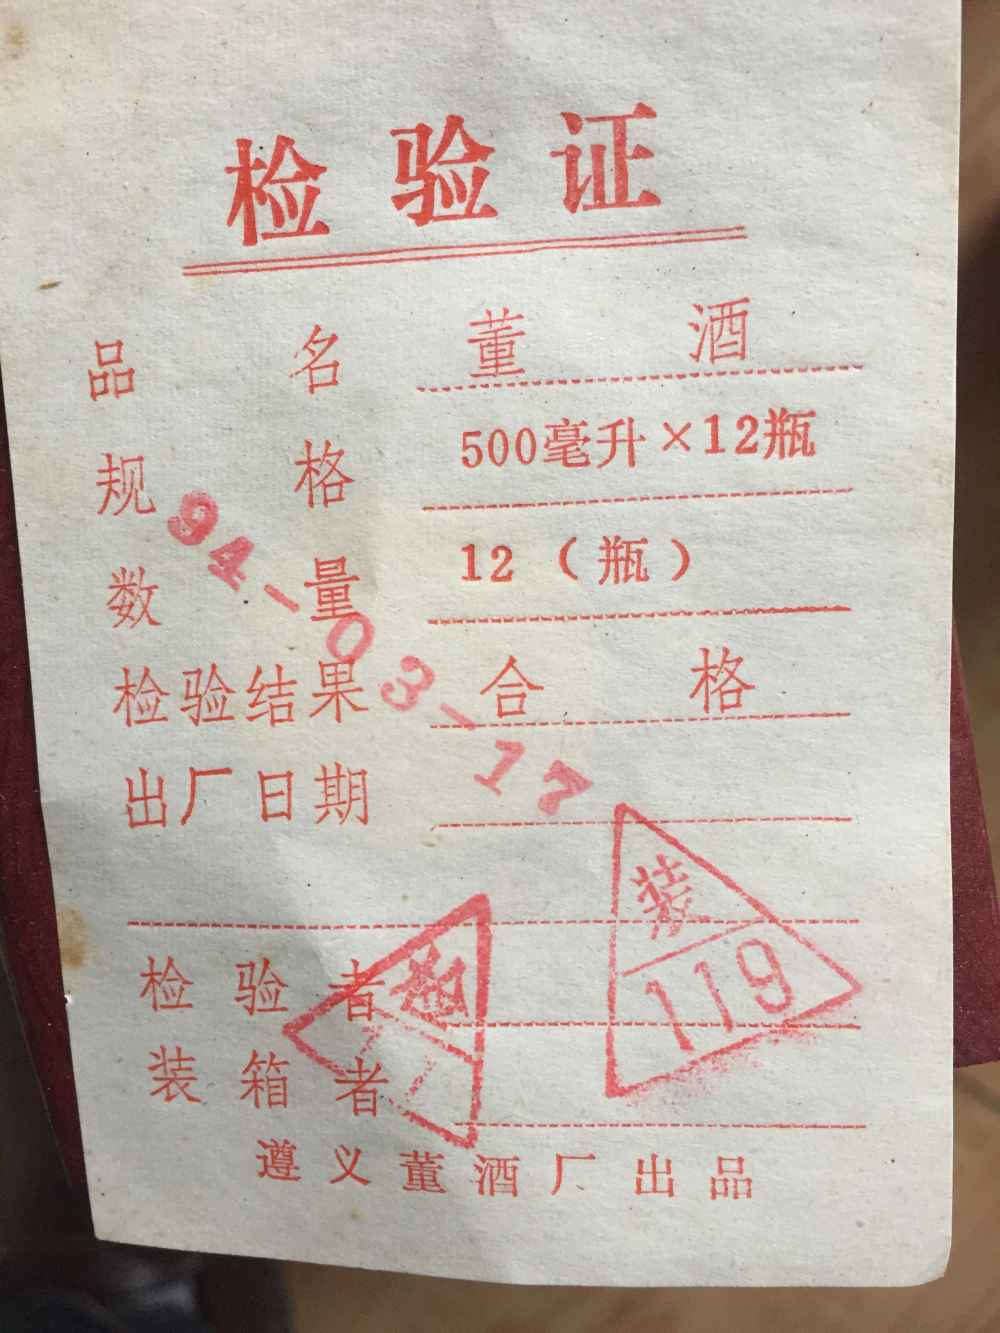 检验证
品名 董酒
规格 500毫升×12瓶
数量 12（瓶）
检验结果 合格
出厂日期
94-03-17
检验者
装箱者
装
119
遵义董酒厂出品